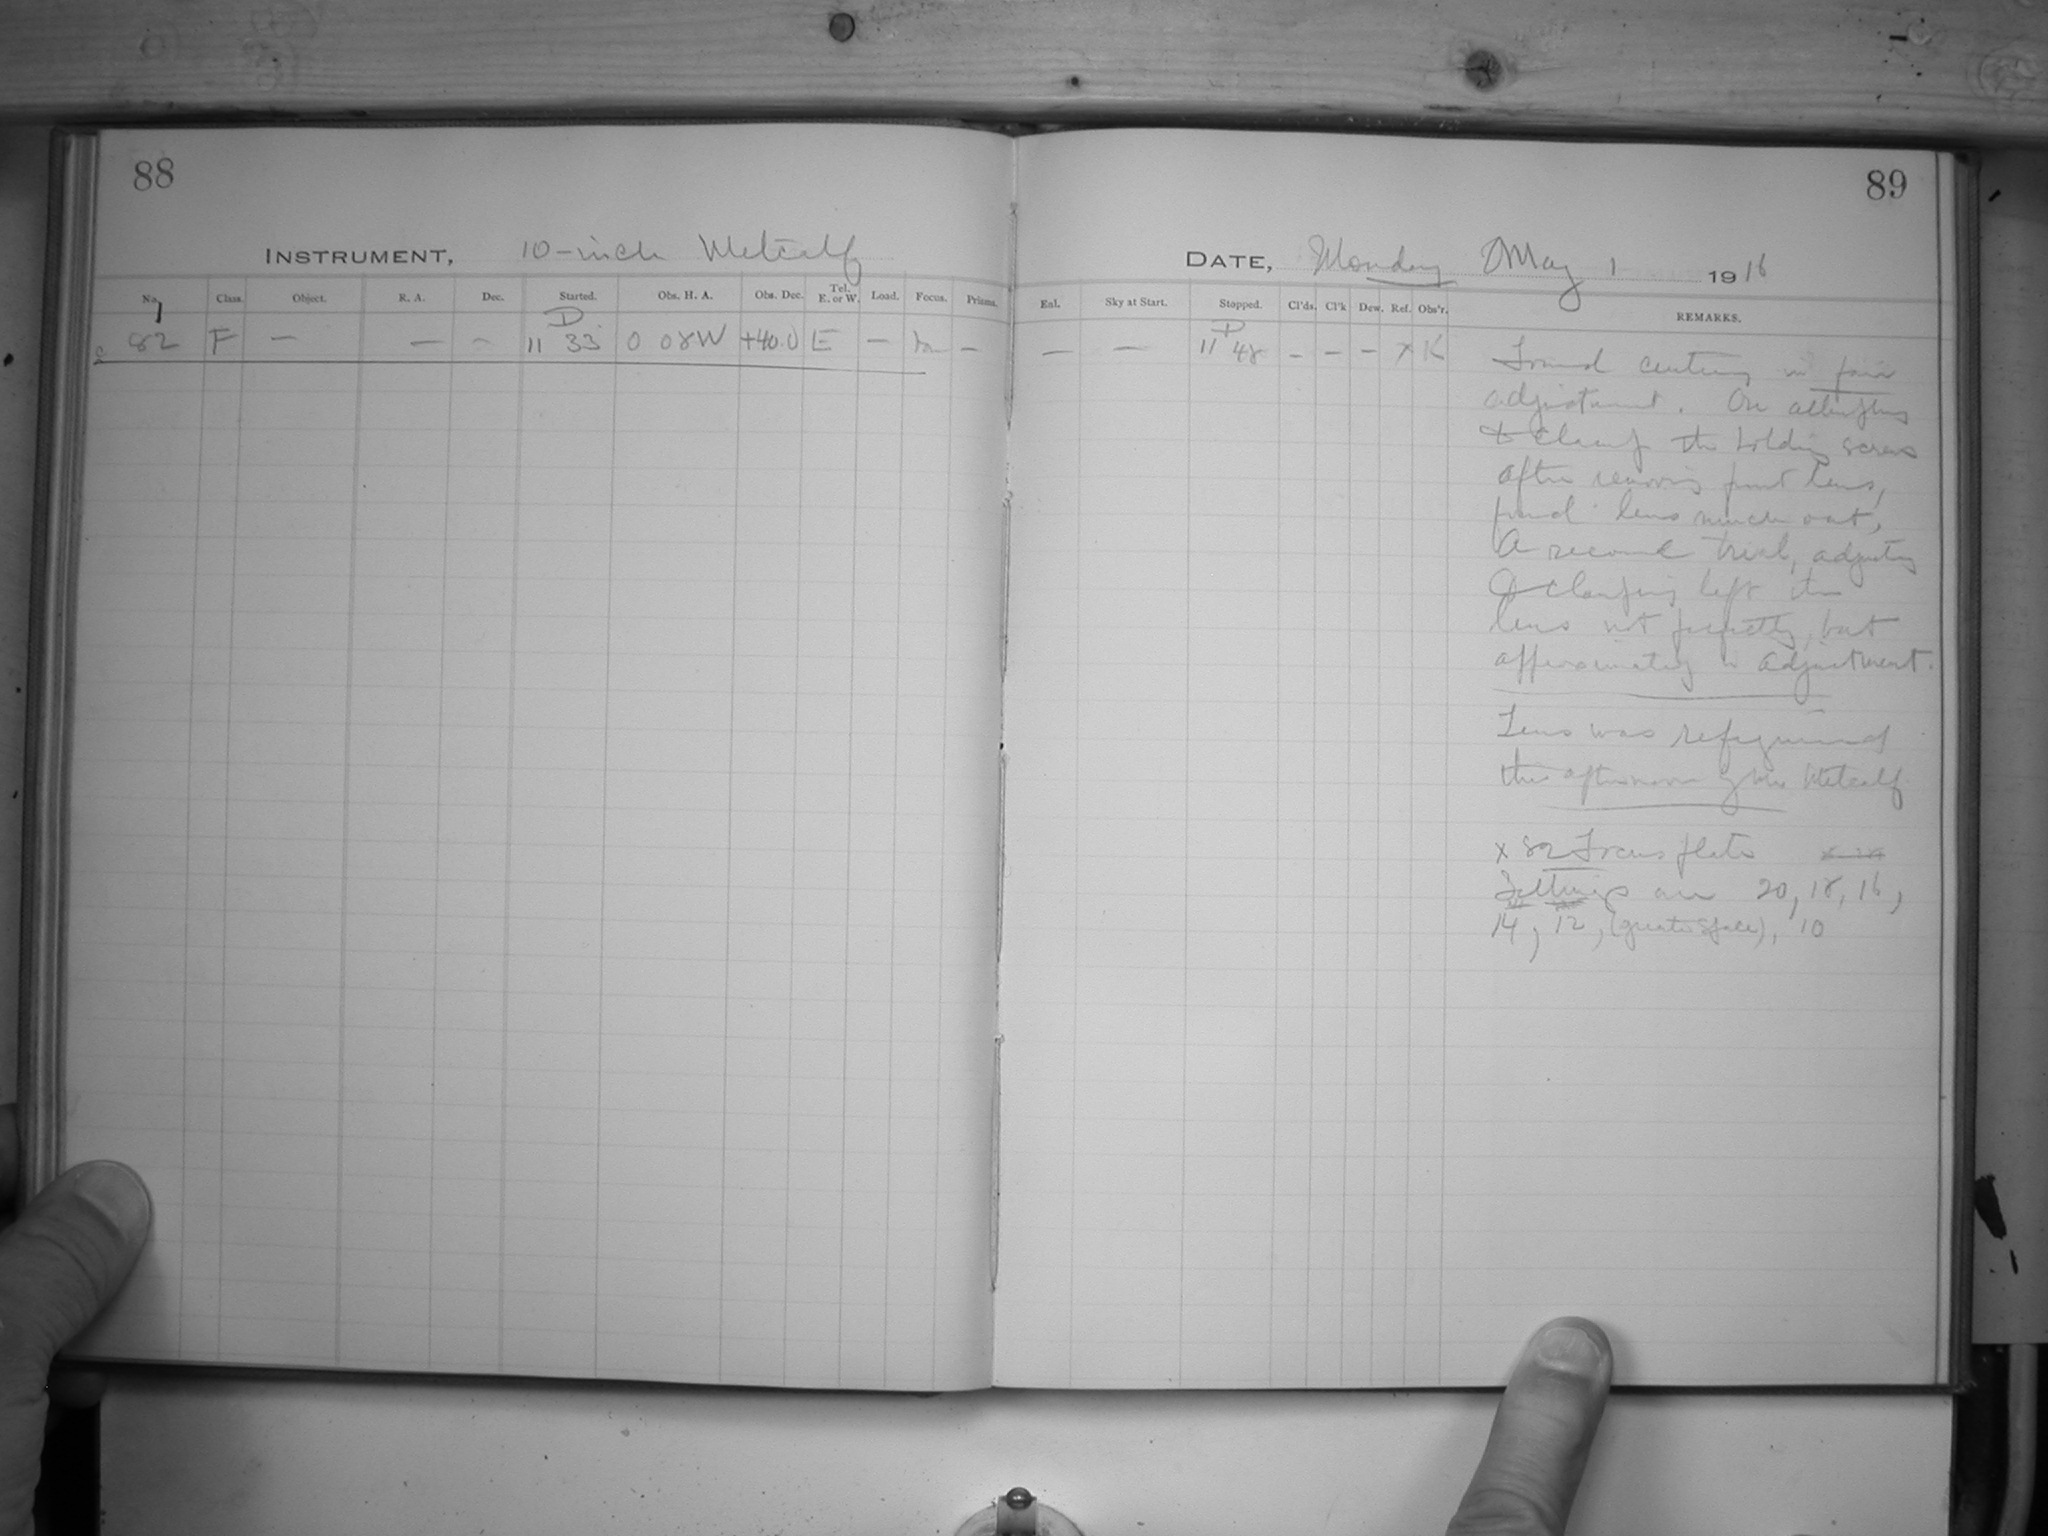 88
INSTRUMENT, 10-inch Metcalf
No. Class. Object. R. A. Dec. Started. Obs. H. A. Obs. Dec. Tel. E. or W. Load. Focus. Prisms.
82 F — — — D 11 33 0 08W +40.0 E — —
89
DATE, Monday May 1 1916
Enl. Sky at Start. Stopped. Cl'ds. Cl'k Dew. Ref. Obs'r. REMARKS.
— — D 11 48 – – – x K
Found centering in fair
adjustment. On attempting
to clamp the holding screws
after removing front lens,
found lens much out.
A second trial, adjusting
& clamping left the
lens not perfectly, but
approximately in adjustment.
Lens was refigured
this afternoon by Mr Metcalf
x 82 Focus plate
Settings are 20, 18, 16,
14, 12, (greater space), 10